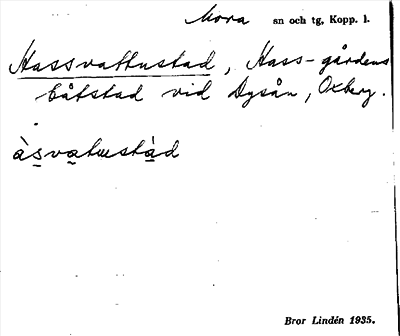 Mora sn och tg, Kopp. l.
Hassvattustad, Hass-gårdens
båtstad vid Dysån, Oxberg.
às̠va̠tustà̠d
Bror Lindén 1935.